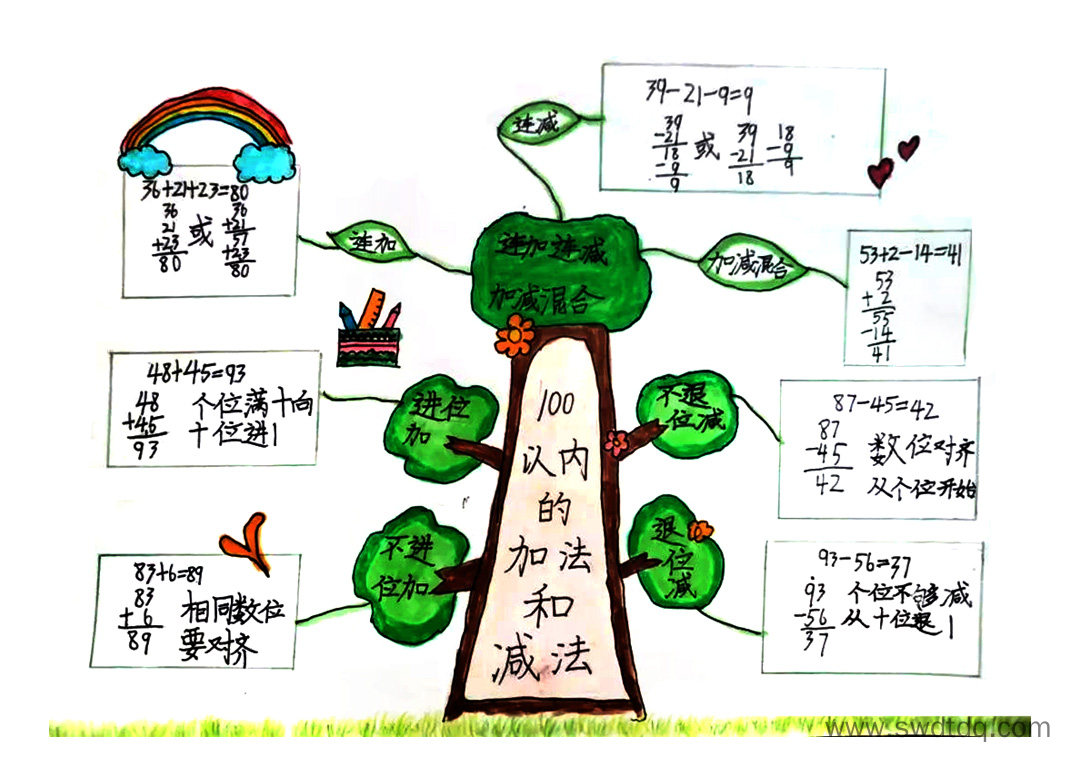 100
以内
的
加法
和
减法
连加连减
加减混合
连减
39-21-9=9
39
-21
18
-9
9
或
39
-21
18
18
-9
9
连加
36+21+23=80
36
21
+23
80
或
36
+21
57
+23
80
加减混合
53+2-14=41
53
+2
55
-14
41
进位
加
48+45=93
48
+45
93
个位满十向
十位进1
不退
位减
87-45=42
87
-45
42
数位对齐
从个位开始
不进
位加
83+6=89
83
+6
89
相同数位
要对齐
退
位
减
93-56=37
93
-56
37
个位不够减
从十位退1
www.swdtdq.com